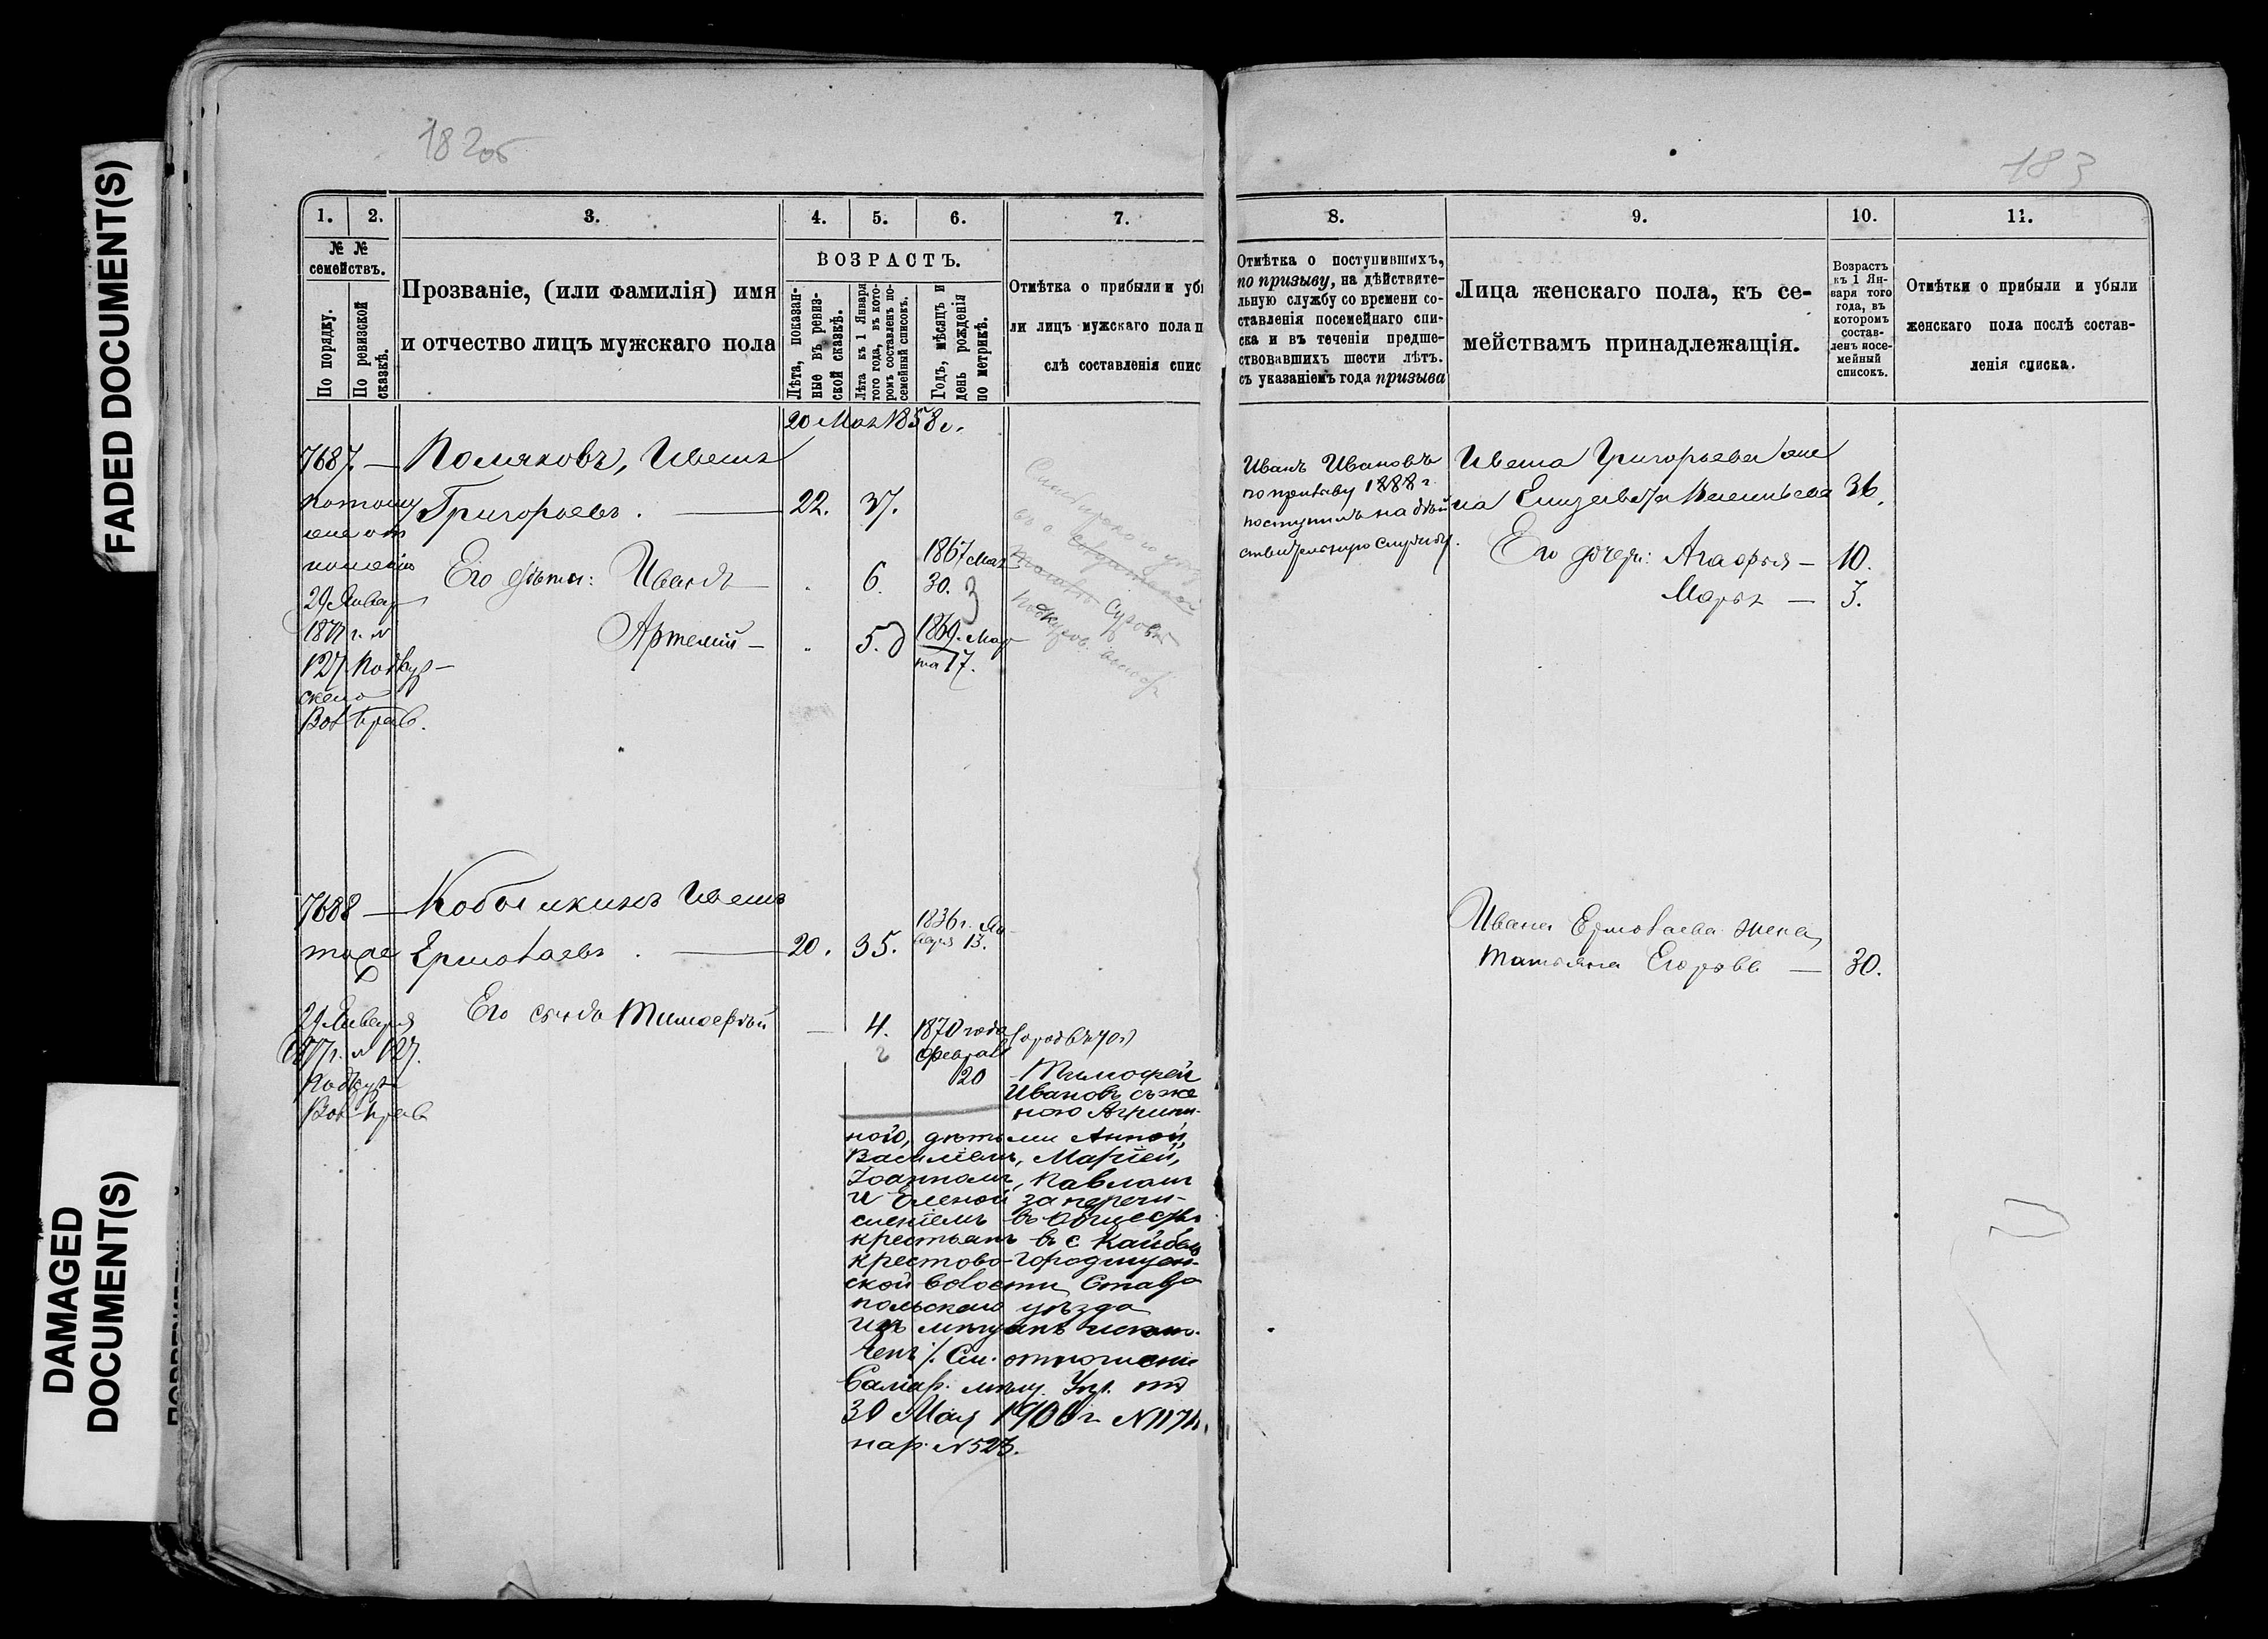 FADED DOCUMENT(S)
DAMAGED
DOCUMENT(S)
182об
183
1.
2.
3.
4.
5.
6.
7.
№ №
семействъ.
По порядку.
По ревизской
сказкѣ.
Прозваніе, (или фамилія) имя
и отчество лицъ мужскаго пола
ВОЗРАСТЪ.
Лѣта, показан-
ные въ ревиз-
ской сказкѣ.
Лѣта къ 1 Января
того года, въ кото-
ромъ составленъ по-
семейный списокъ.
Годъ, мѣсяцъ и
день рожденія
по метрикѣ.
Отмѣтка о прибыли и уб
ли лицъ мужскаго пола п
слѣ составленія спис
20 Мая 1858 г.
7687. — Поляковъ, Иванъ
Григорьевъ. — 22. 37.
29 Январ
1877 г. №
127 Подкур-
скаго
Вол Прав.
Его дѣти: Иванъ — 6. 1867 Мая
30.
Артемій — 5. 1869. Мар
та 17.
7688 — Кобылкинъ Иванъ
тоже Ермолаевъ. — 20. 35. 1836 г. Ян
варя 13.
29 Января
1877 г. № 127.
Подкур
Вол Прав
Его сынъ Тимофѣй — 4. 1870 года
2 Феврал
20
Тимофей
Ивановъ съ же
ною Агрипи-
ной, дѣтьми Анной,
Василіемъ, Маріей,
Іоанномъ, Павломъ
и Еленой за перечи-
сленіемъ въ общество
крестьянъ въ с Кайбелы
Крестово-Городищен-
ской волости Ставро
польскаго уѣзда
изъ мѣщанъ исклю-
ченъ /. См. отношеніе
Самар. мѣщ. Упр. отъ
30 Мая 1900 г №
нар. № 523.
8.
9.
10.
11.
Отмѣтка о поступившихъ,
по призыву, на дѣйствите-
льную службу со времени со-
ставленія посемейнаго спи-
ска и въ теченіи предше-
ствовавшихъ шести лѣтъ.
съ указаніемъ года призыва
Лица женскаго пола, къ се-
мействамъ принадлежащія.
Возрастъ
къ 1 Ян-
варя того
года, въ
которомъ
состав-
ленъ посе-
мейный
списокъ.
Отмѣтки о прибыли и убыли
женскаго пола послѣ состав-
ленія списка.
Иванъ Ивановъ
по призыву 1888 г.
поступилъ на дѣй
ствительную службу.
Ивана Григорьева же
на Елизавета Васильева 36.
Его дочери: Агафья — 10.
Марья — 3.
Ивана Ермолаева жена
Татьяна Егорова — 30.